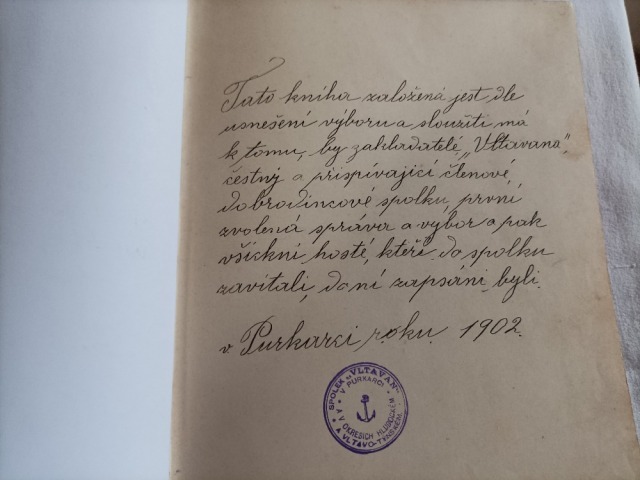 Tato kniha založená jest dle
usnešení výboru a sloužiti má
k tomu, by zakladatelé „Vltavana",
čestný a prispívající členové,
dobrodincové spolku, první
zvolená správa a výbor a pak
všickni hosté, kteří do spolku
zavítali, do ní zapsáni byli.
v Purkarci roku 1902.
SPOLEK „VLTAVAN"
V PURKARCI
A V OKRESÍCH HLUBOCKÉM
A VLTAVO-TÝNSKÉM